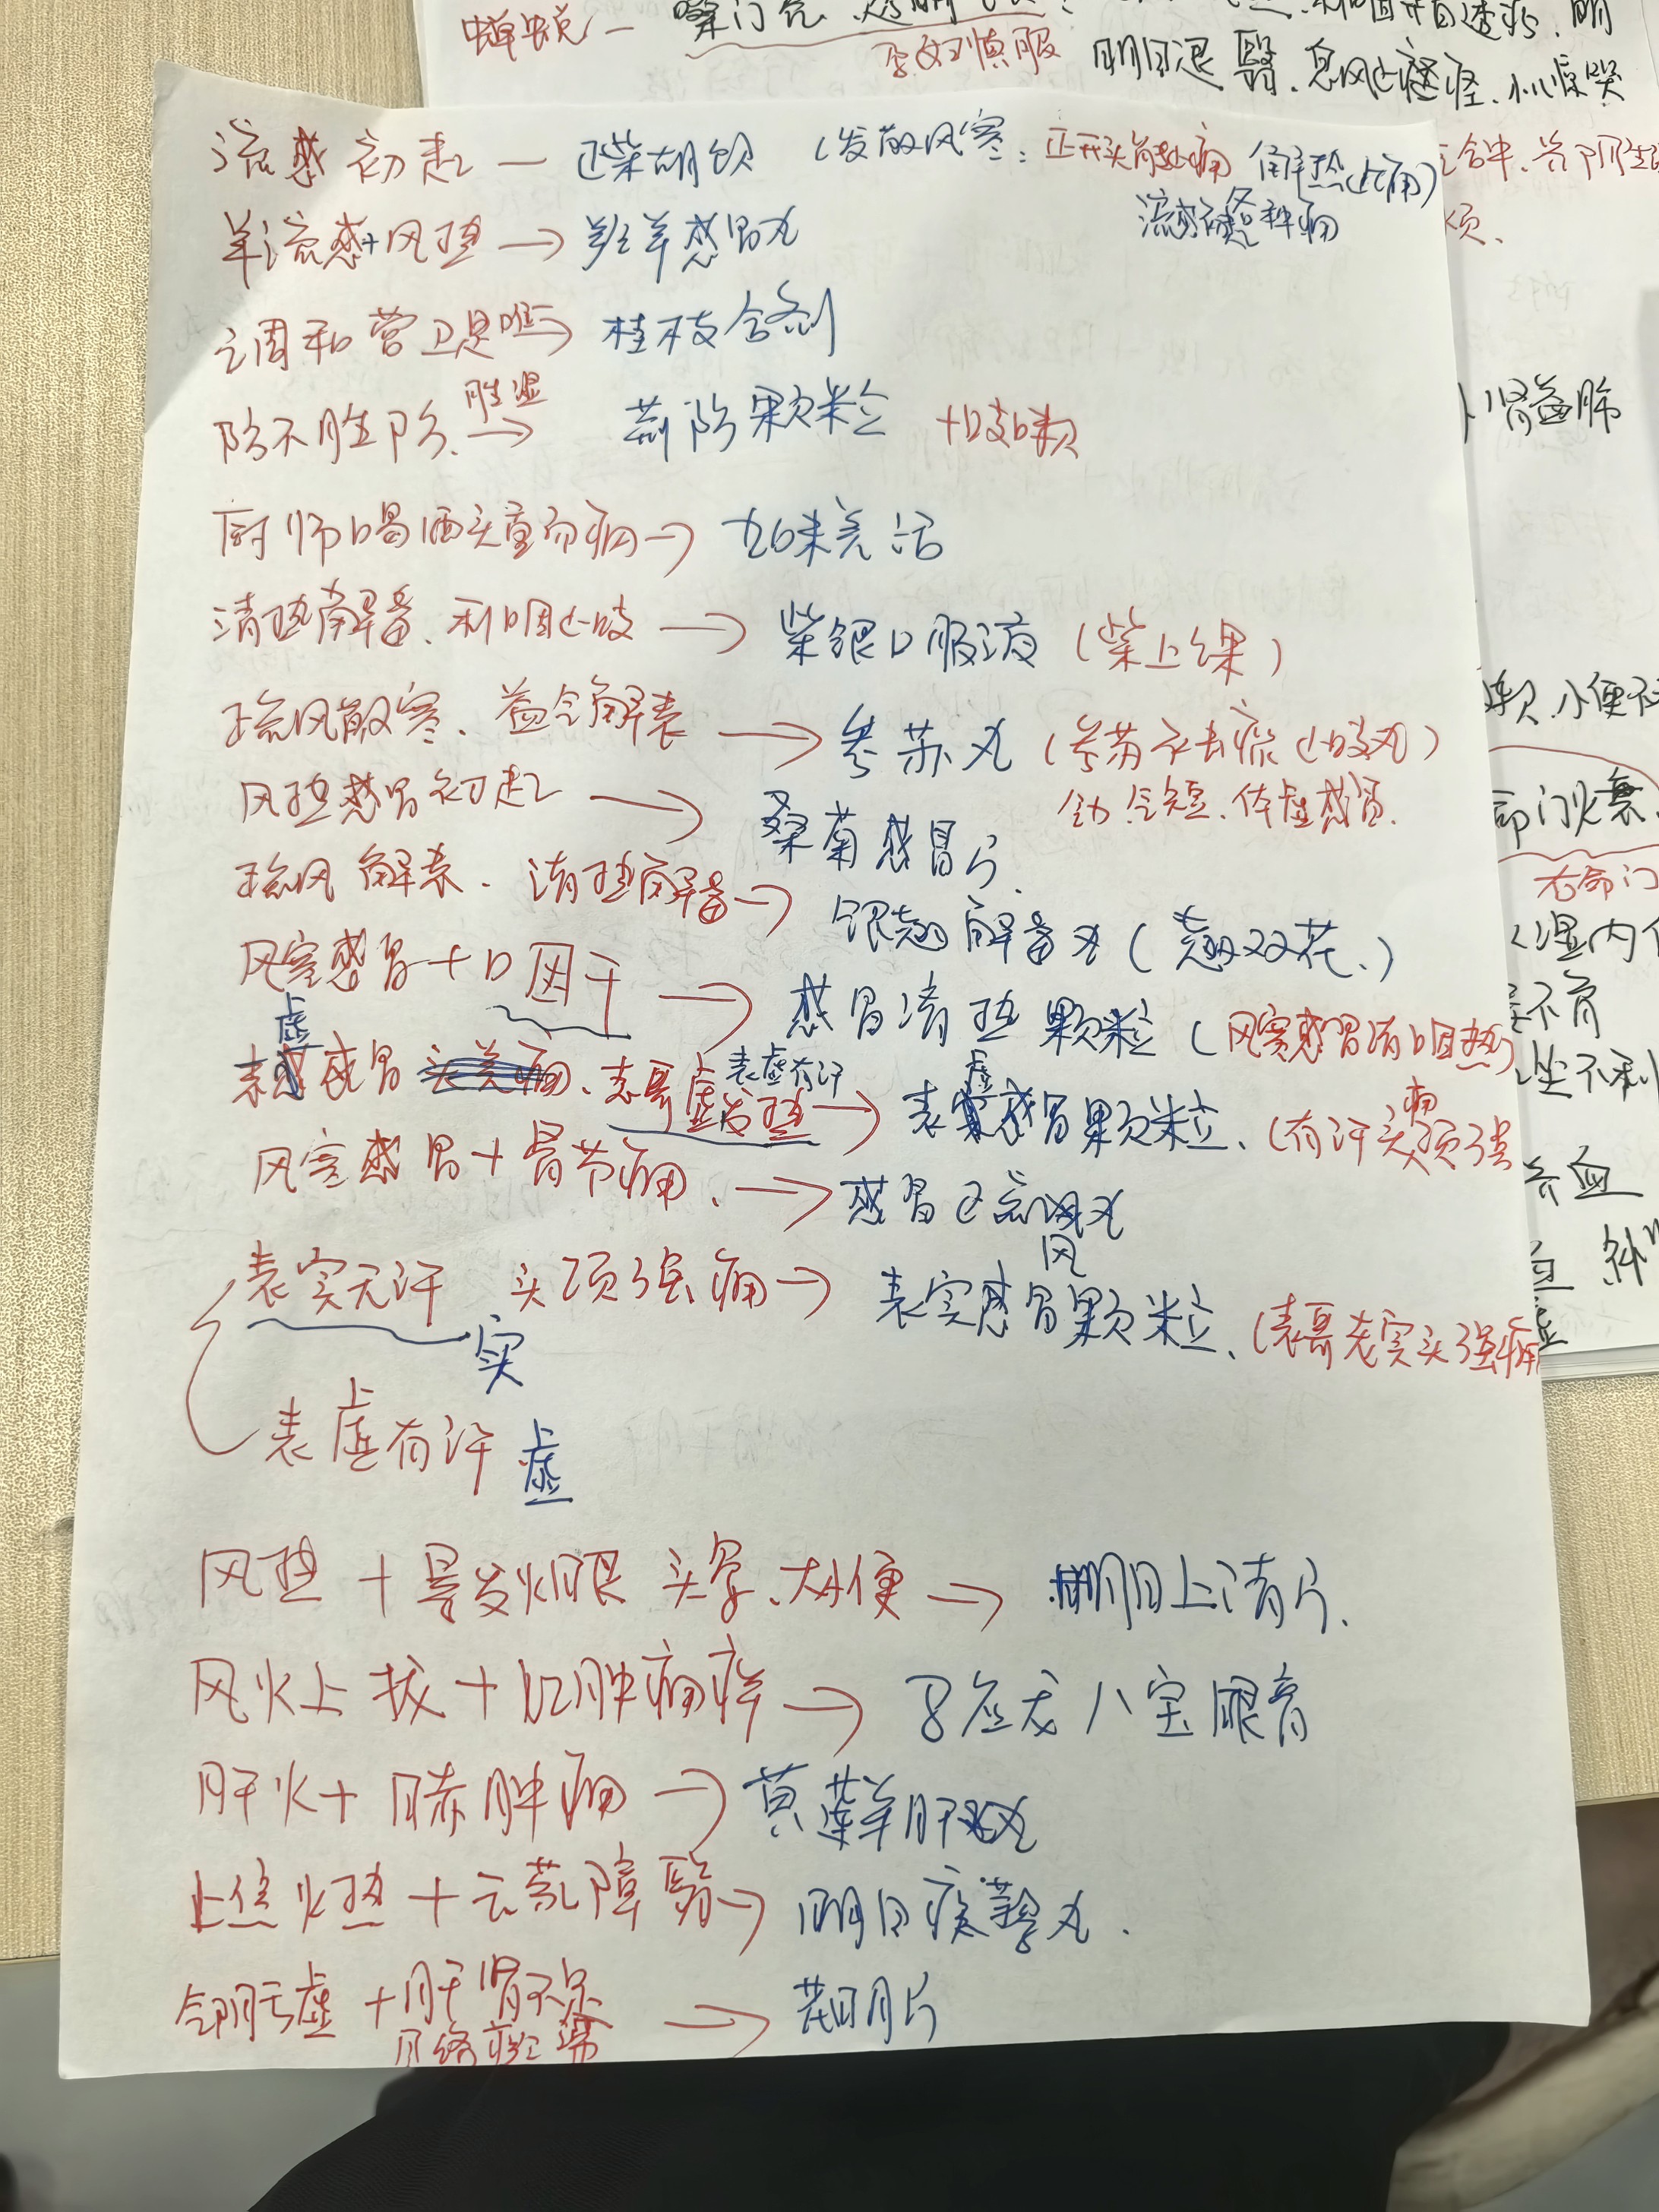 蝉蜕一
孕妇慎服
明目退翳、息风止痉、小儿惊哭
流感初起一正柴胡饮（发散风寒：正开头前起痛 解热止痛）
流感碰各种痛
羊流感+风热→羚羊感冒丸
调和营卫是唯一→桂枝合剂
防不胜防、胜湿→荆防颗粒 +口支口赖
厨师喝酒头重而痛→九味羌活
清热解毒、利咽止咳→柴银口服液（柴上课）
疏风散寒、益气解表→参苏丸（参苏 去痰止咳丸）
乏力 气短、体虚感冒.
风热感冒初起→桑菊感冒片.
疏风解表、清热解毒→银翘解毒丸（翘双花、）
风寒感冒+口因干→感冒清热颗粒（风寒感冒清口咽热）
表虚感冒、表哥虚发热 表虚有汗→表虚感冒颗粒、（有汗头痛项强
风寒感冒+骨节痛、→感冒疏风丸
风
表实无汗 头项强痛→表实感冒颗粒、（表哥老实头强痛
实
表虚有汗 虚
风热+暴发火眼 头晕、大便→明目上清片、
风火上扰+红肿痛痒→马应龙八宝眼膏
肝火+目赤肿痛→黄连羊肝丸
上焦火热+云蒙障翳→明目蒺藜丸.
气阴亏虚+肝肾不足→芪明片
目络瘀滞
肾益肺
小便不
命门火衰
右命门
湿内
不育
不利
养血